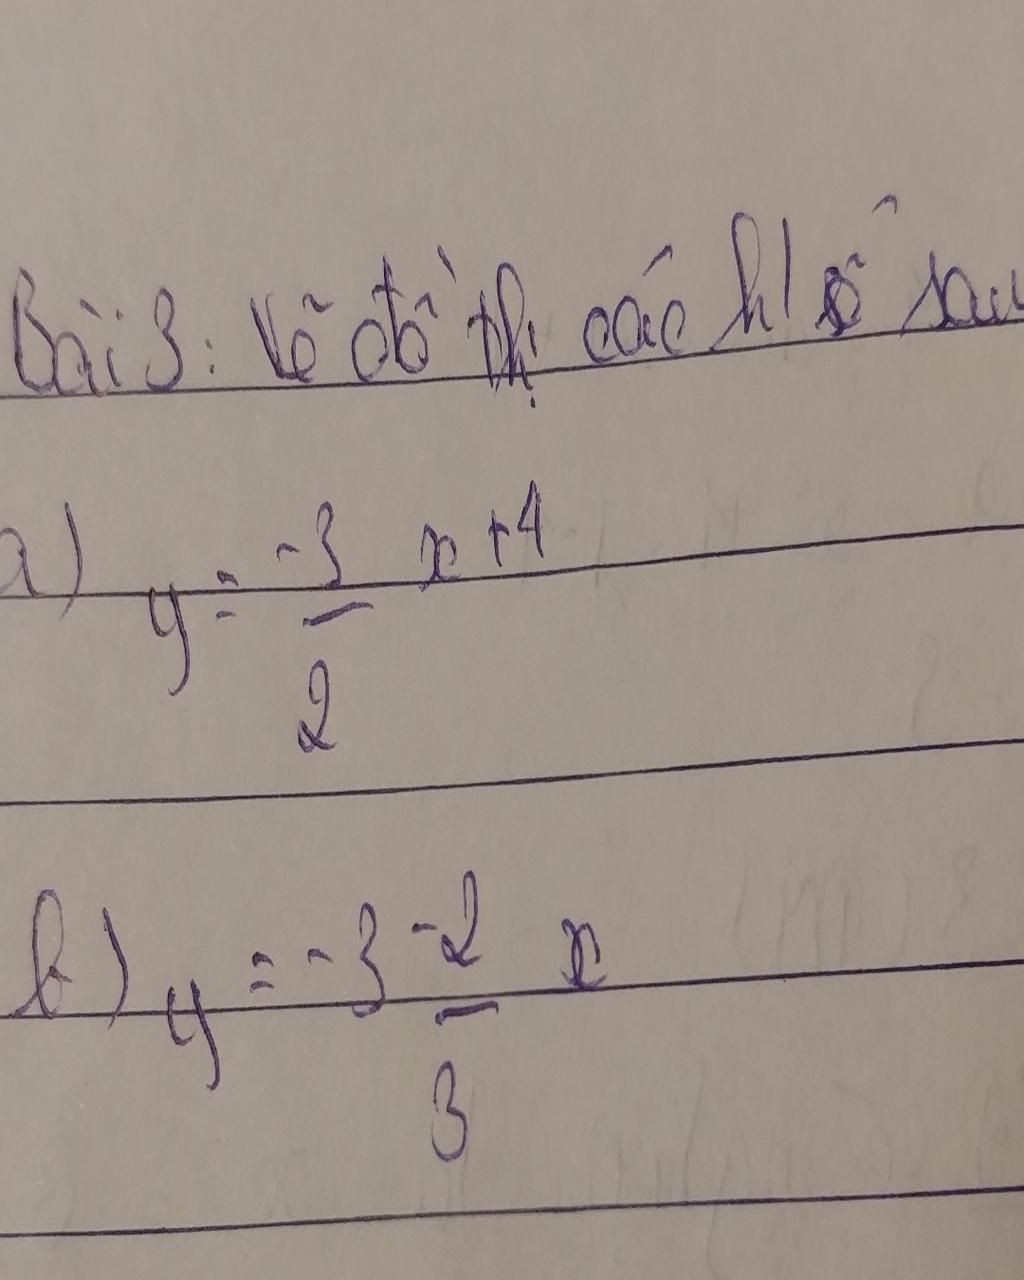 Bài 3: Vẽ đồ thị các h/số sau
a) y = -3/2 x + 4
b) y = -3 -2/3 x